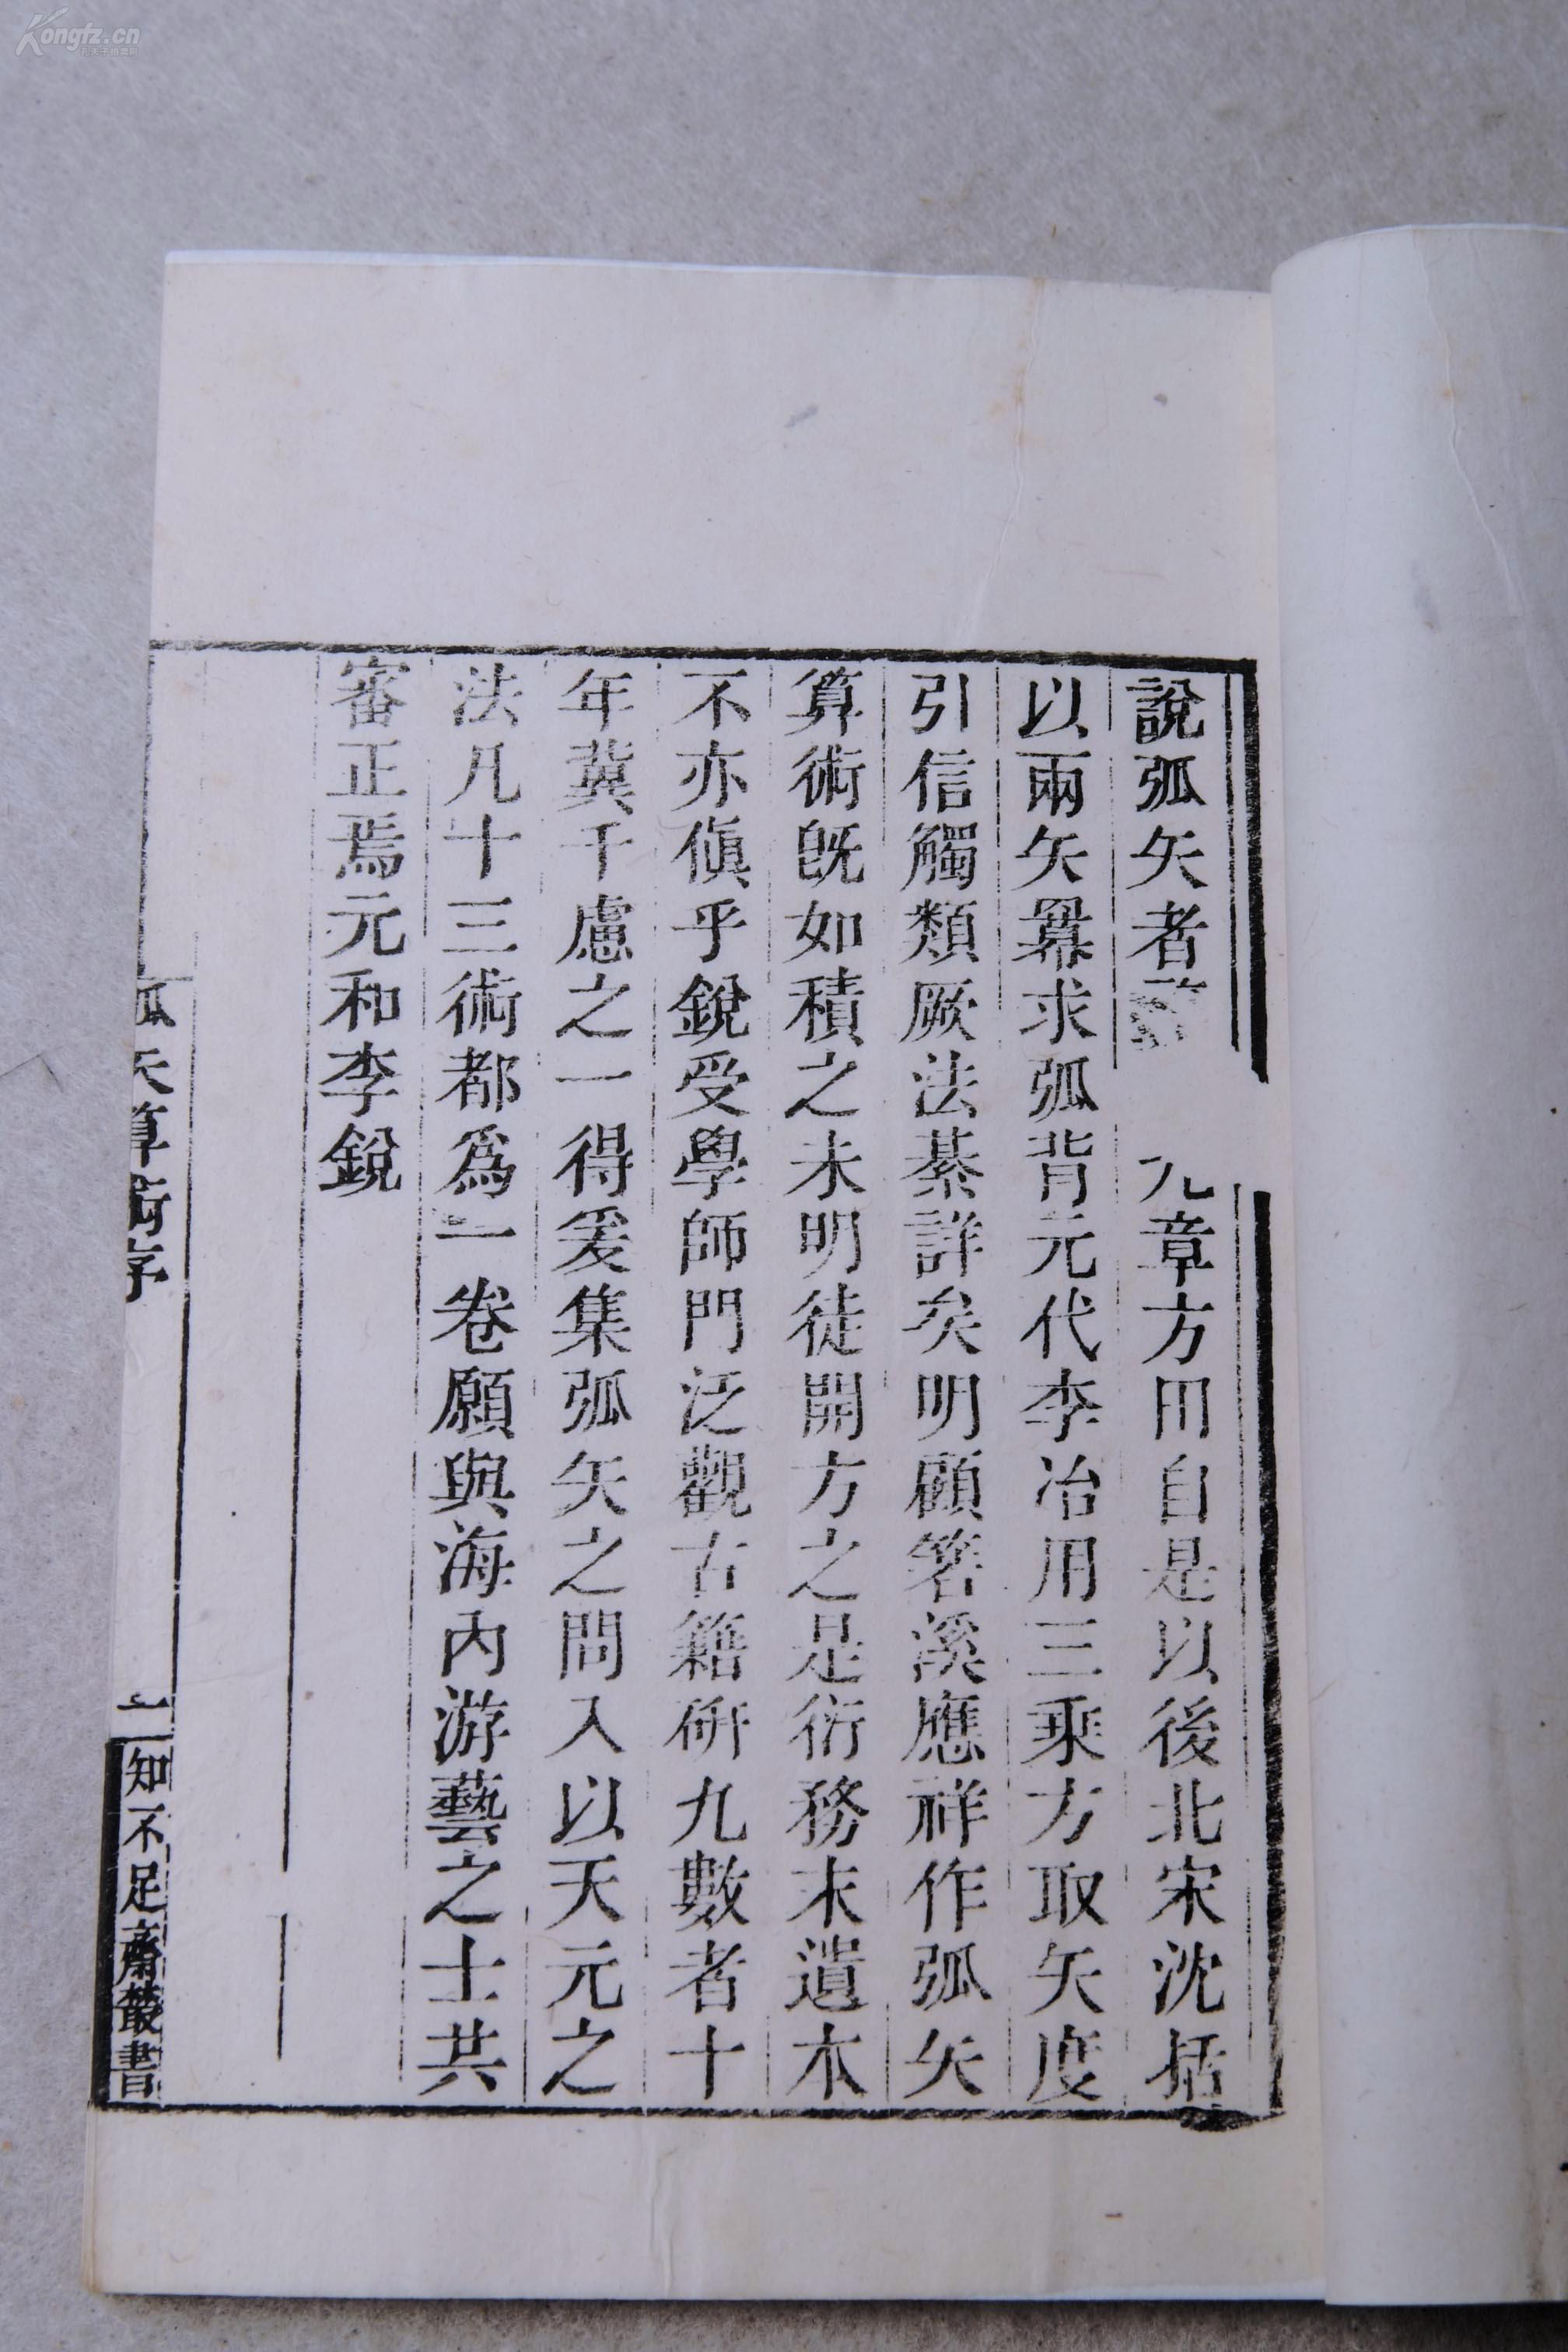 說弧矢者 九章方田自是以後北宋沈括
以兩矢冪求弧背元代李冶用三乘方取矢度
引信觸類厥法綦詳矣明顧箬溪應祥作弧矢
算術旣如積之未明徒開方之是衒務末遺本
不亦傎乎銳受學師門泛觀古籍硏九數者十
年冀千慮之一得爰集弧矢之問入以天元之
法凡十三術都爲一卷願與海內游藝之士共
審正焉元和李銳
弧矢算術序
一 知不足齋叢書
Kongfz.cn